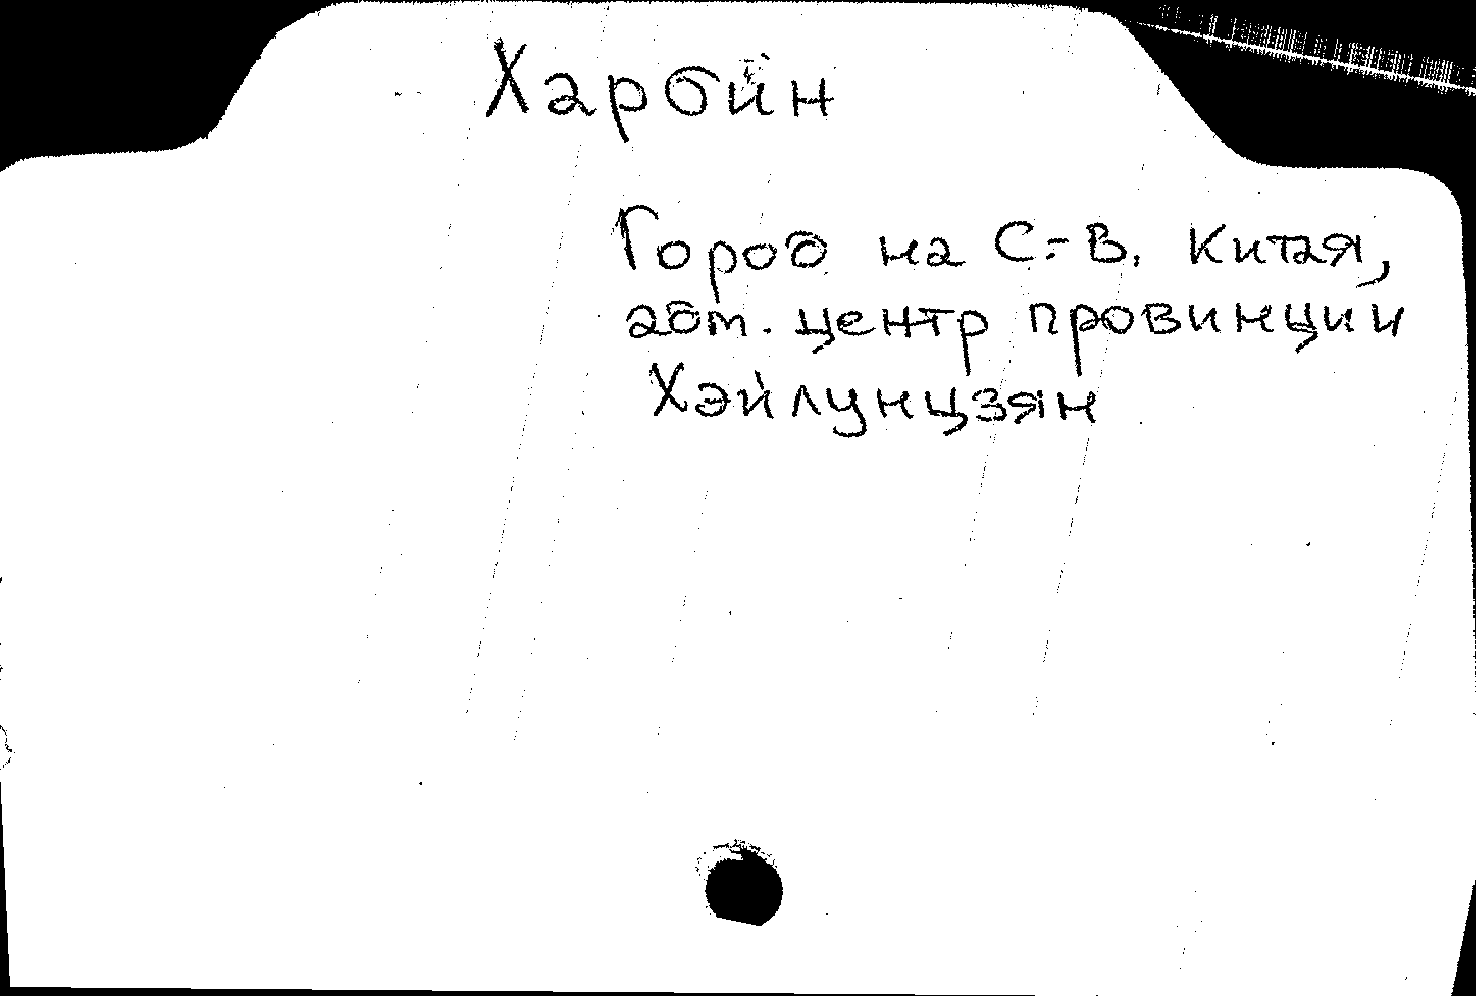 Харбин
Город на С.-В. Китая,
адм. центр провинции
Хэйлунцзян